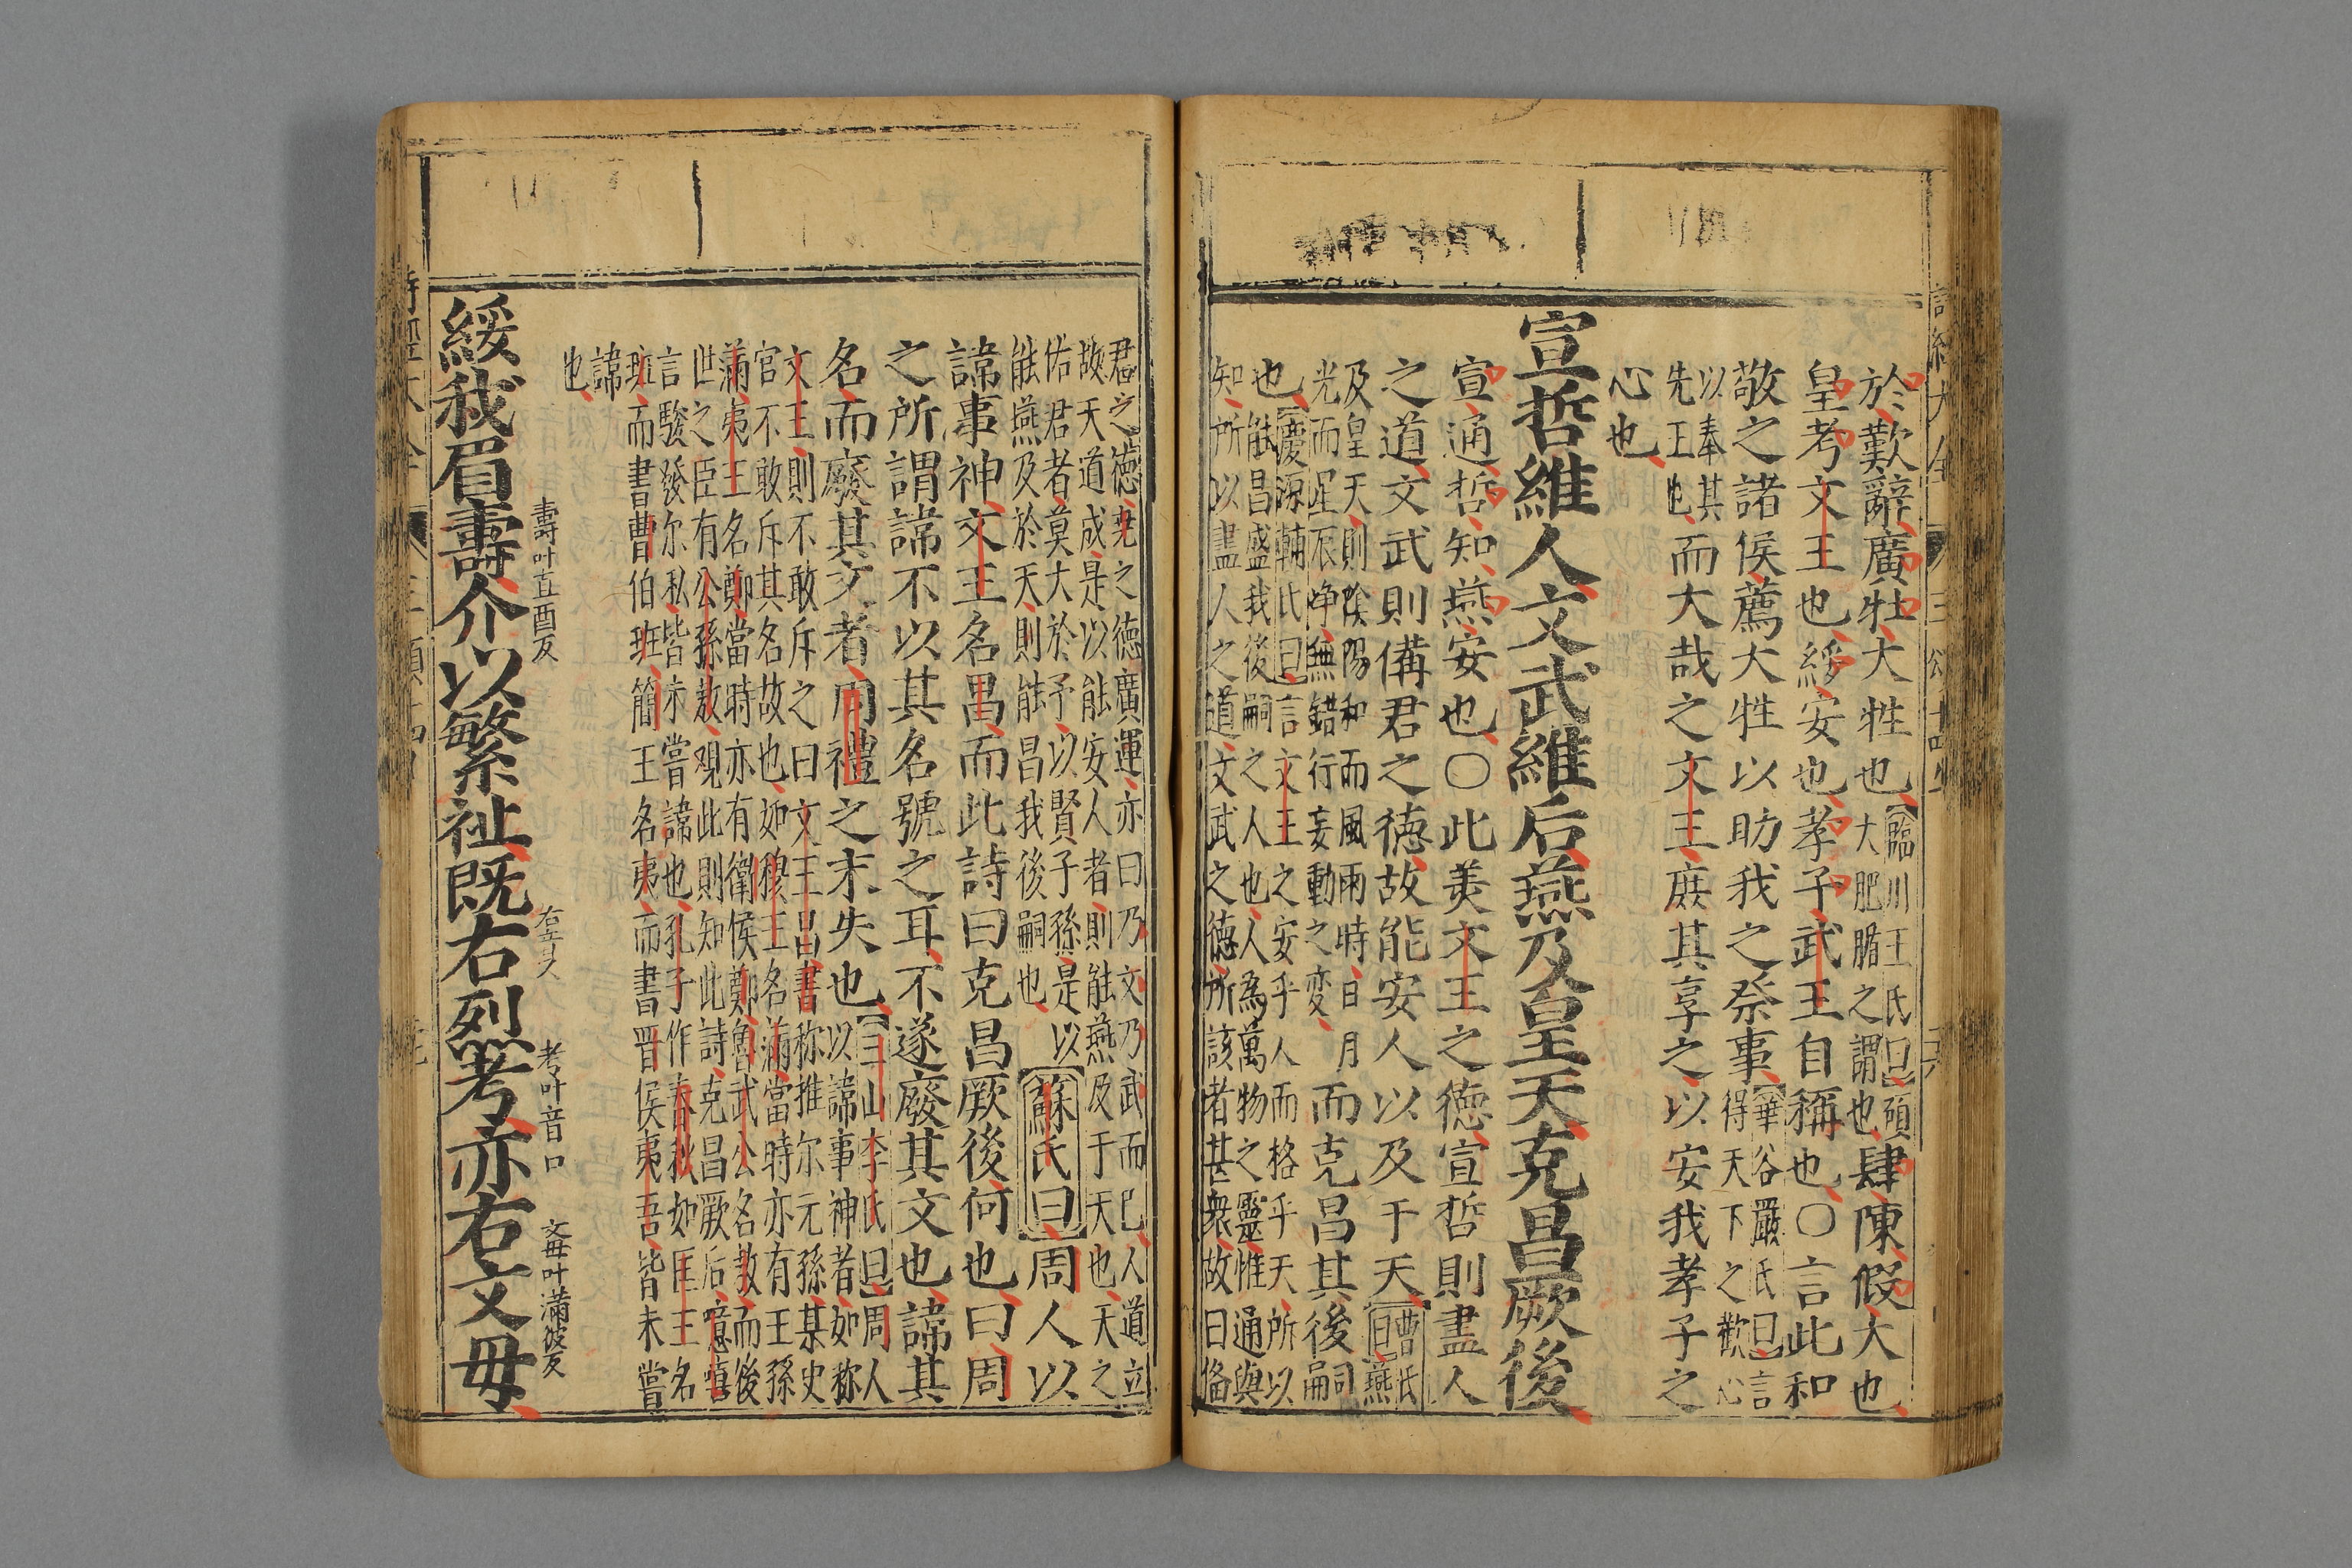 於歎辭廣牡大牲也
臨川王氏曰碩
大肥腯之謂也
肆陳假大也
皇考文王也綏安也孝子武王自稱也○言此和
敬之諸侯薦大牲以助我之祭事
華谷嚴氏曰言
得天下之歡心
以奉其
先王也
而大哉之文王庶其享之以安我孝子之
心也
宣哲維人文武維后燕及皇天克昌厥後
宣通哲知燕安也○此美文王之德宣哲則盡人
之道文武則備君之德故能安人以及于天
曹氏曰燕
及皇天則陰陽和而風雨時日月
光而星辰靜無錯行妄動之変
而克昌其後嗣
也
慶源輔氏曰言文王之安乎人而格乎天所以
能昌盛我後嗣之人也人為萬物之靈惟通與
知所以盡人之道文武之德所該者甚衆故曰備
君之德尭之德廣運亦曰乃文乃武而已人道立
故天道成是以能安人者則能燕及于天也天之
佑君者莫大於予以賢子孫是以
能燕及於天則能昌我後嗣也
蘇氏曰周人以
諱事神文王名昌而此詩曰克昌厥後何也曰周
之所謂諱不以其名號之耳不遂廢其文也諱其
名而廢其文者周禮之末失也
三山李氏曰周人
以諱事神者如称
文王則不敢斥之曰文王昌書称推尔元孫某史
官不敢斥其名故也如穆王名滿當時亦有王孫
滿夷王名鄭當時亦有衛侯鄭魯武公名敖而後
世之臣有公孫敖观此則知此詩克昌厥后噫嘻
言駿發尔私皆未嘗諱也孔子作春秋如匡王名
班而書曹伯班簡王名夷而書晋侯夷吾皆未嘗
諱
也
綏我眉壽
壽叶直酉反
介以繁祉既右
右音又
烈考
考叶音口
亦右文母
文母叶滿彼反